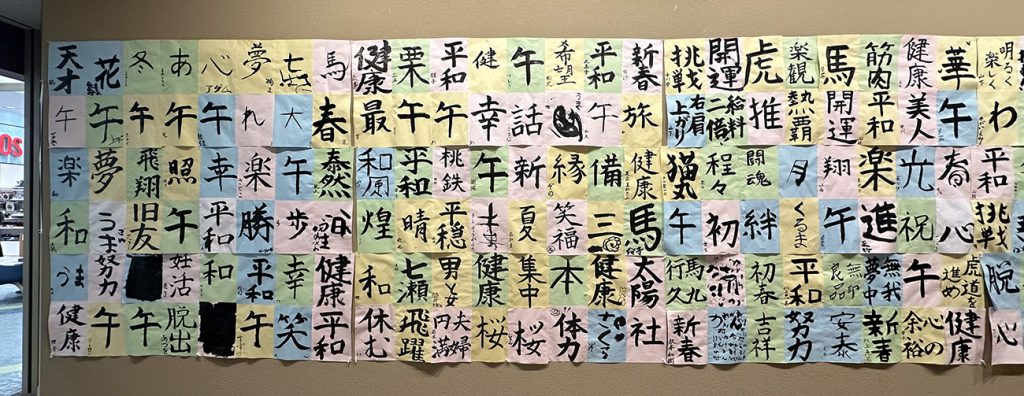 天才 花 冬 あ 心 夢 七 馬 健康 栗 平和 健 午 希望 平和 新春 挑戦 開運 虎 楽観 馬 筋肉 健康 華 明るく楽しく
午 午 午 午 午 れ 大 春 最 午 午 幸 話 午 旅 右肩上がり 給料二倍 推 熱い覇 開運 平和 美人 午 わ
楽 夢 飛翔 照 幸 楽 午 泰然 和風 平和 桃鉄 午 新 縁 備 健康 猫丸 程々 闘魂 月 翔 楽 光 春 平和
和 うま 旧友 午 平和 勝 歩 煌 晴 平穏 夏 笑福 三 馬 午 初 絆 くるま 午 進 祝 心 挑戦
うま 努力 妊活 和 平和 幸 健康 和 七瀬 男と女 健康 集中 本 健康 太陽 馬九行久 初春 平和 無印良品 無我夢中 午 虎道を進め 脱
健康 午 午 脱出 午 笑 平和 休む 飛躍 夫婦円満 桜 桜 体力 さくら 社 新春 吉祥 努力 安泰 新春 心の余裕 健康 心